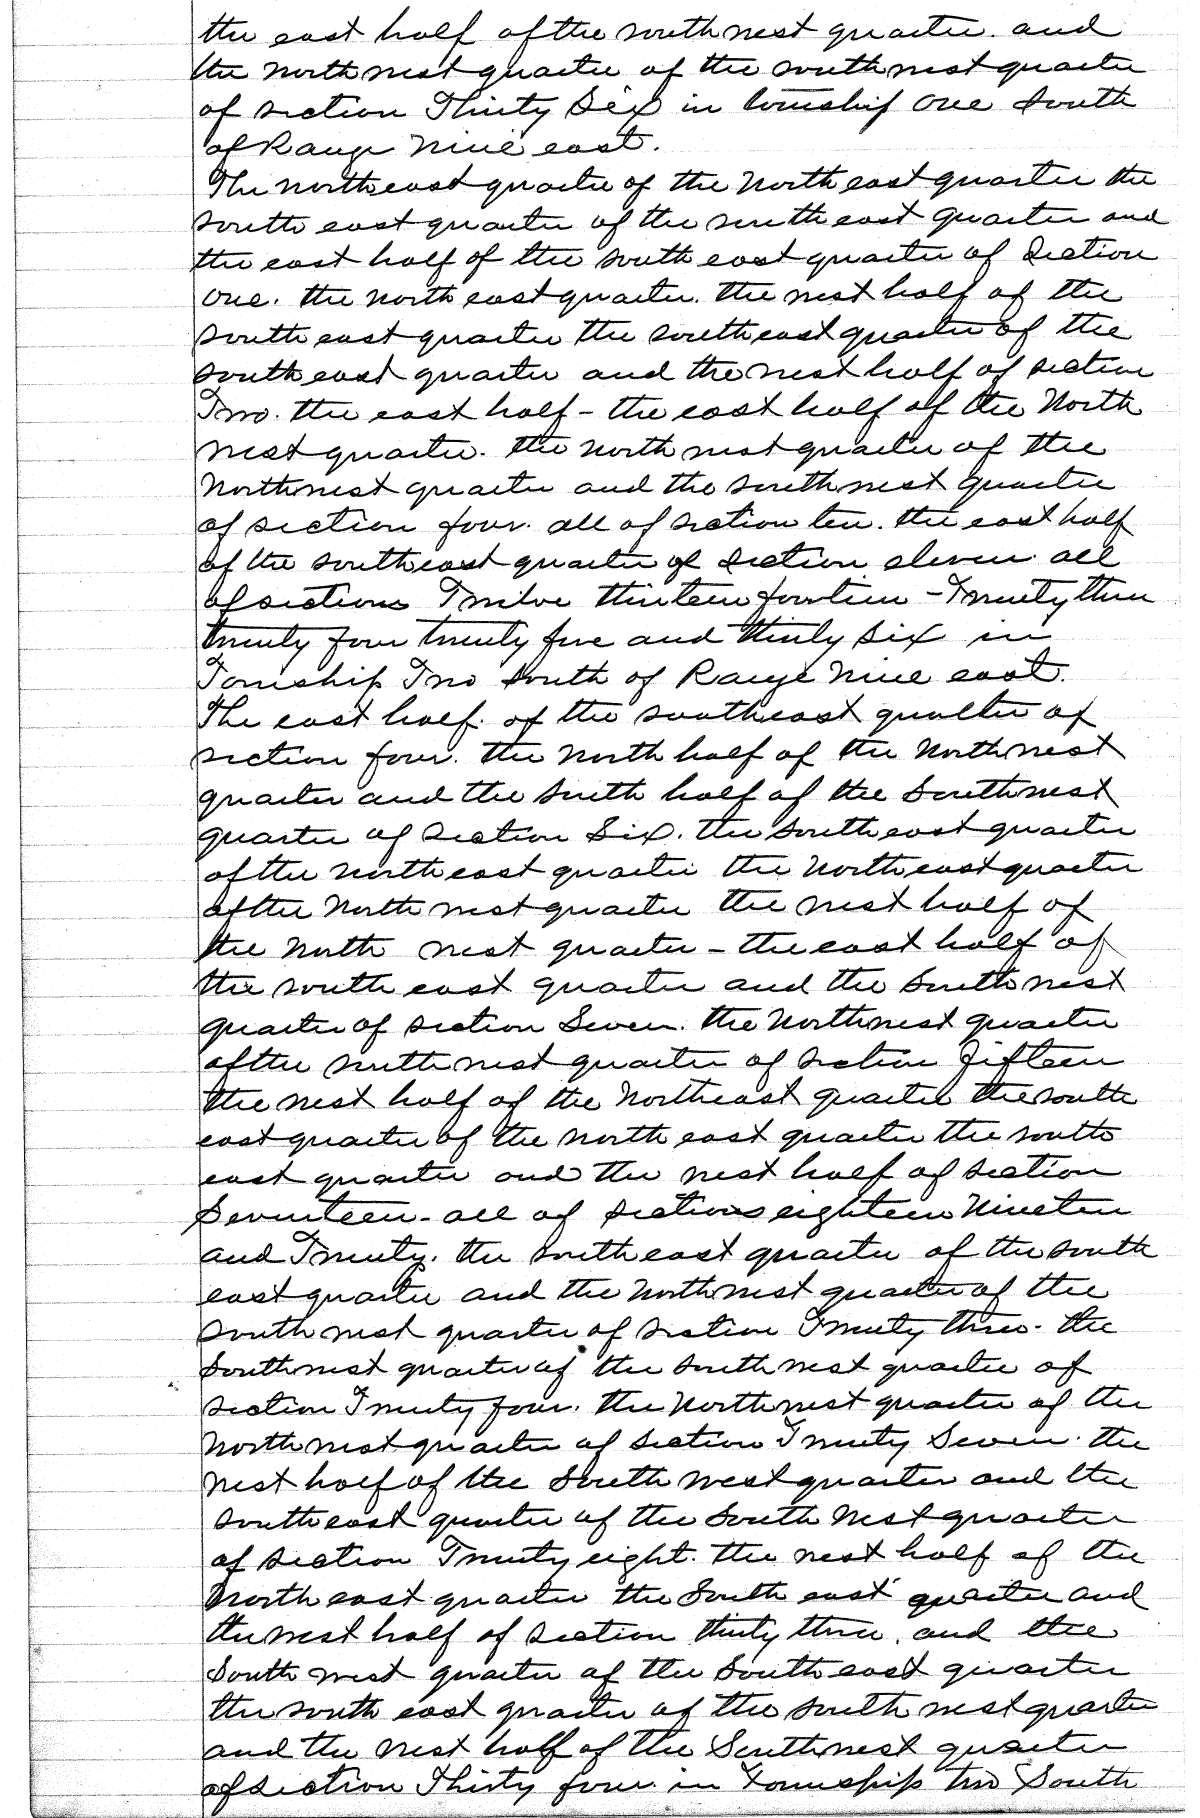 the east half of the south west quarter. and
the north west quarter of the south west quarter
of section Thirty Six in township one South
of Range Nine east.
The north east quarter of the North east quarter the
south east quarter of the south east quarter and
the east half of the south east quarter of Section
one. the north east quarter. the west half of the
south east quarter the south east quarter of the
south east quarter and the west half of section
Two. the east half - the east half of the North
west quarter. the north west quarter of the
North west quarter and the south west quarter
of section four. all of section ten. the east half
of the south east quarter of Section eleven all
of sections Twelve thirteen fourteen - Twenty three
twenty four twenty five and thirty six in
Township Two South of Range Nine east.
The east half. of the south east quarter of
section four. the North half of the North west
quarter and the South half of the South west
quarter of Section Six. the South east quarter
of the north east quarter the North east quarter
of the North west quarter the west half of
the North west quarter - the east half of
the south east quarter and the South west
quarter of section Seven. the North west quarter
of the south west quarter of section fifteen
the west half of the North east quarter the south
east quarter of the north east quarter the south
east quarter and the west half of section
Seventeen - all of sections eighteen Nineteen
and Twenty. the south east quarter of the south
east quarter and the North west quarter of the
south west quarter of section Twenty three. the
South west quarter of the south west quarter of
section Twenty four. the North west quarter of the
North west quarter of section Twenty Seven. the
west half of the South west quarter and the
south east quarter of the South West quarter
of section Twenty eight. the west half of the
North east quarter the South east quarter and
the west half of section thirty three. and the
South west quarter of the South east quarter
the south east quarter of the south west quarter
and the west half of the South west quarter
of section Thirty four in Township two South